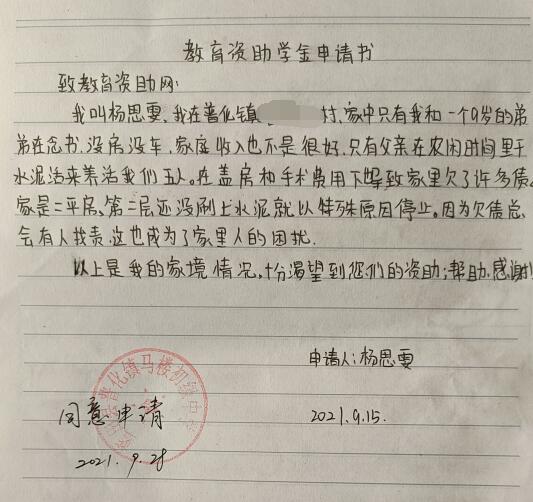 教育资助学金申请书
致教育资助网:
我叫杨思雯,我在普化镇 村,家中只有我和一个9岁的弟
弟在念书,没房没车,家庭收入也不是很好,只有父亲在农闲时间里干
水泥活来养活我们五人。在盖房和手术费用下导致家里欠了许多债。
家是二平房、第二层还没刷上水泥就以特殊原因停止。因为欠债总
会有人找责,这也成为了家里人的困扰.
以上是我的家境情况,十分渴望到您们的资助;帮助.感谢!
申请人:杨思雯
2021.9.15.
普化镇马楼初级中
同意申请
2021.9.28